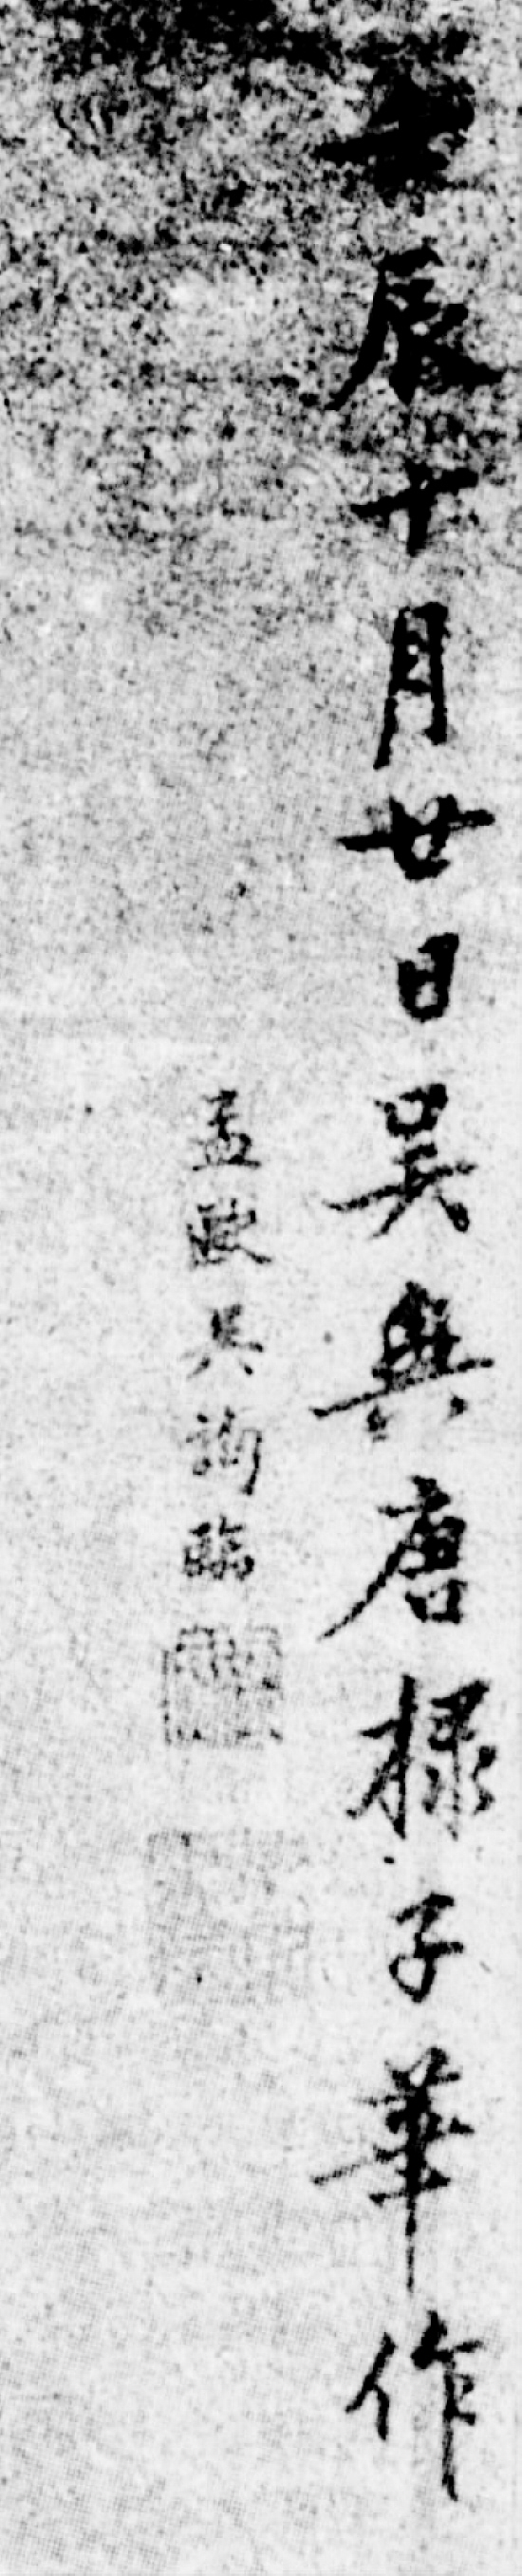 壬辰十月廿日吳興唐棣子華作
孟歐吳詢臨